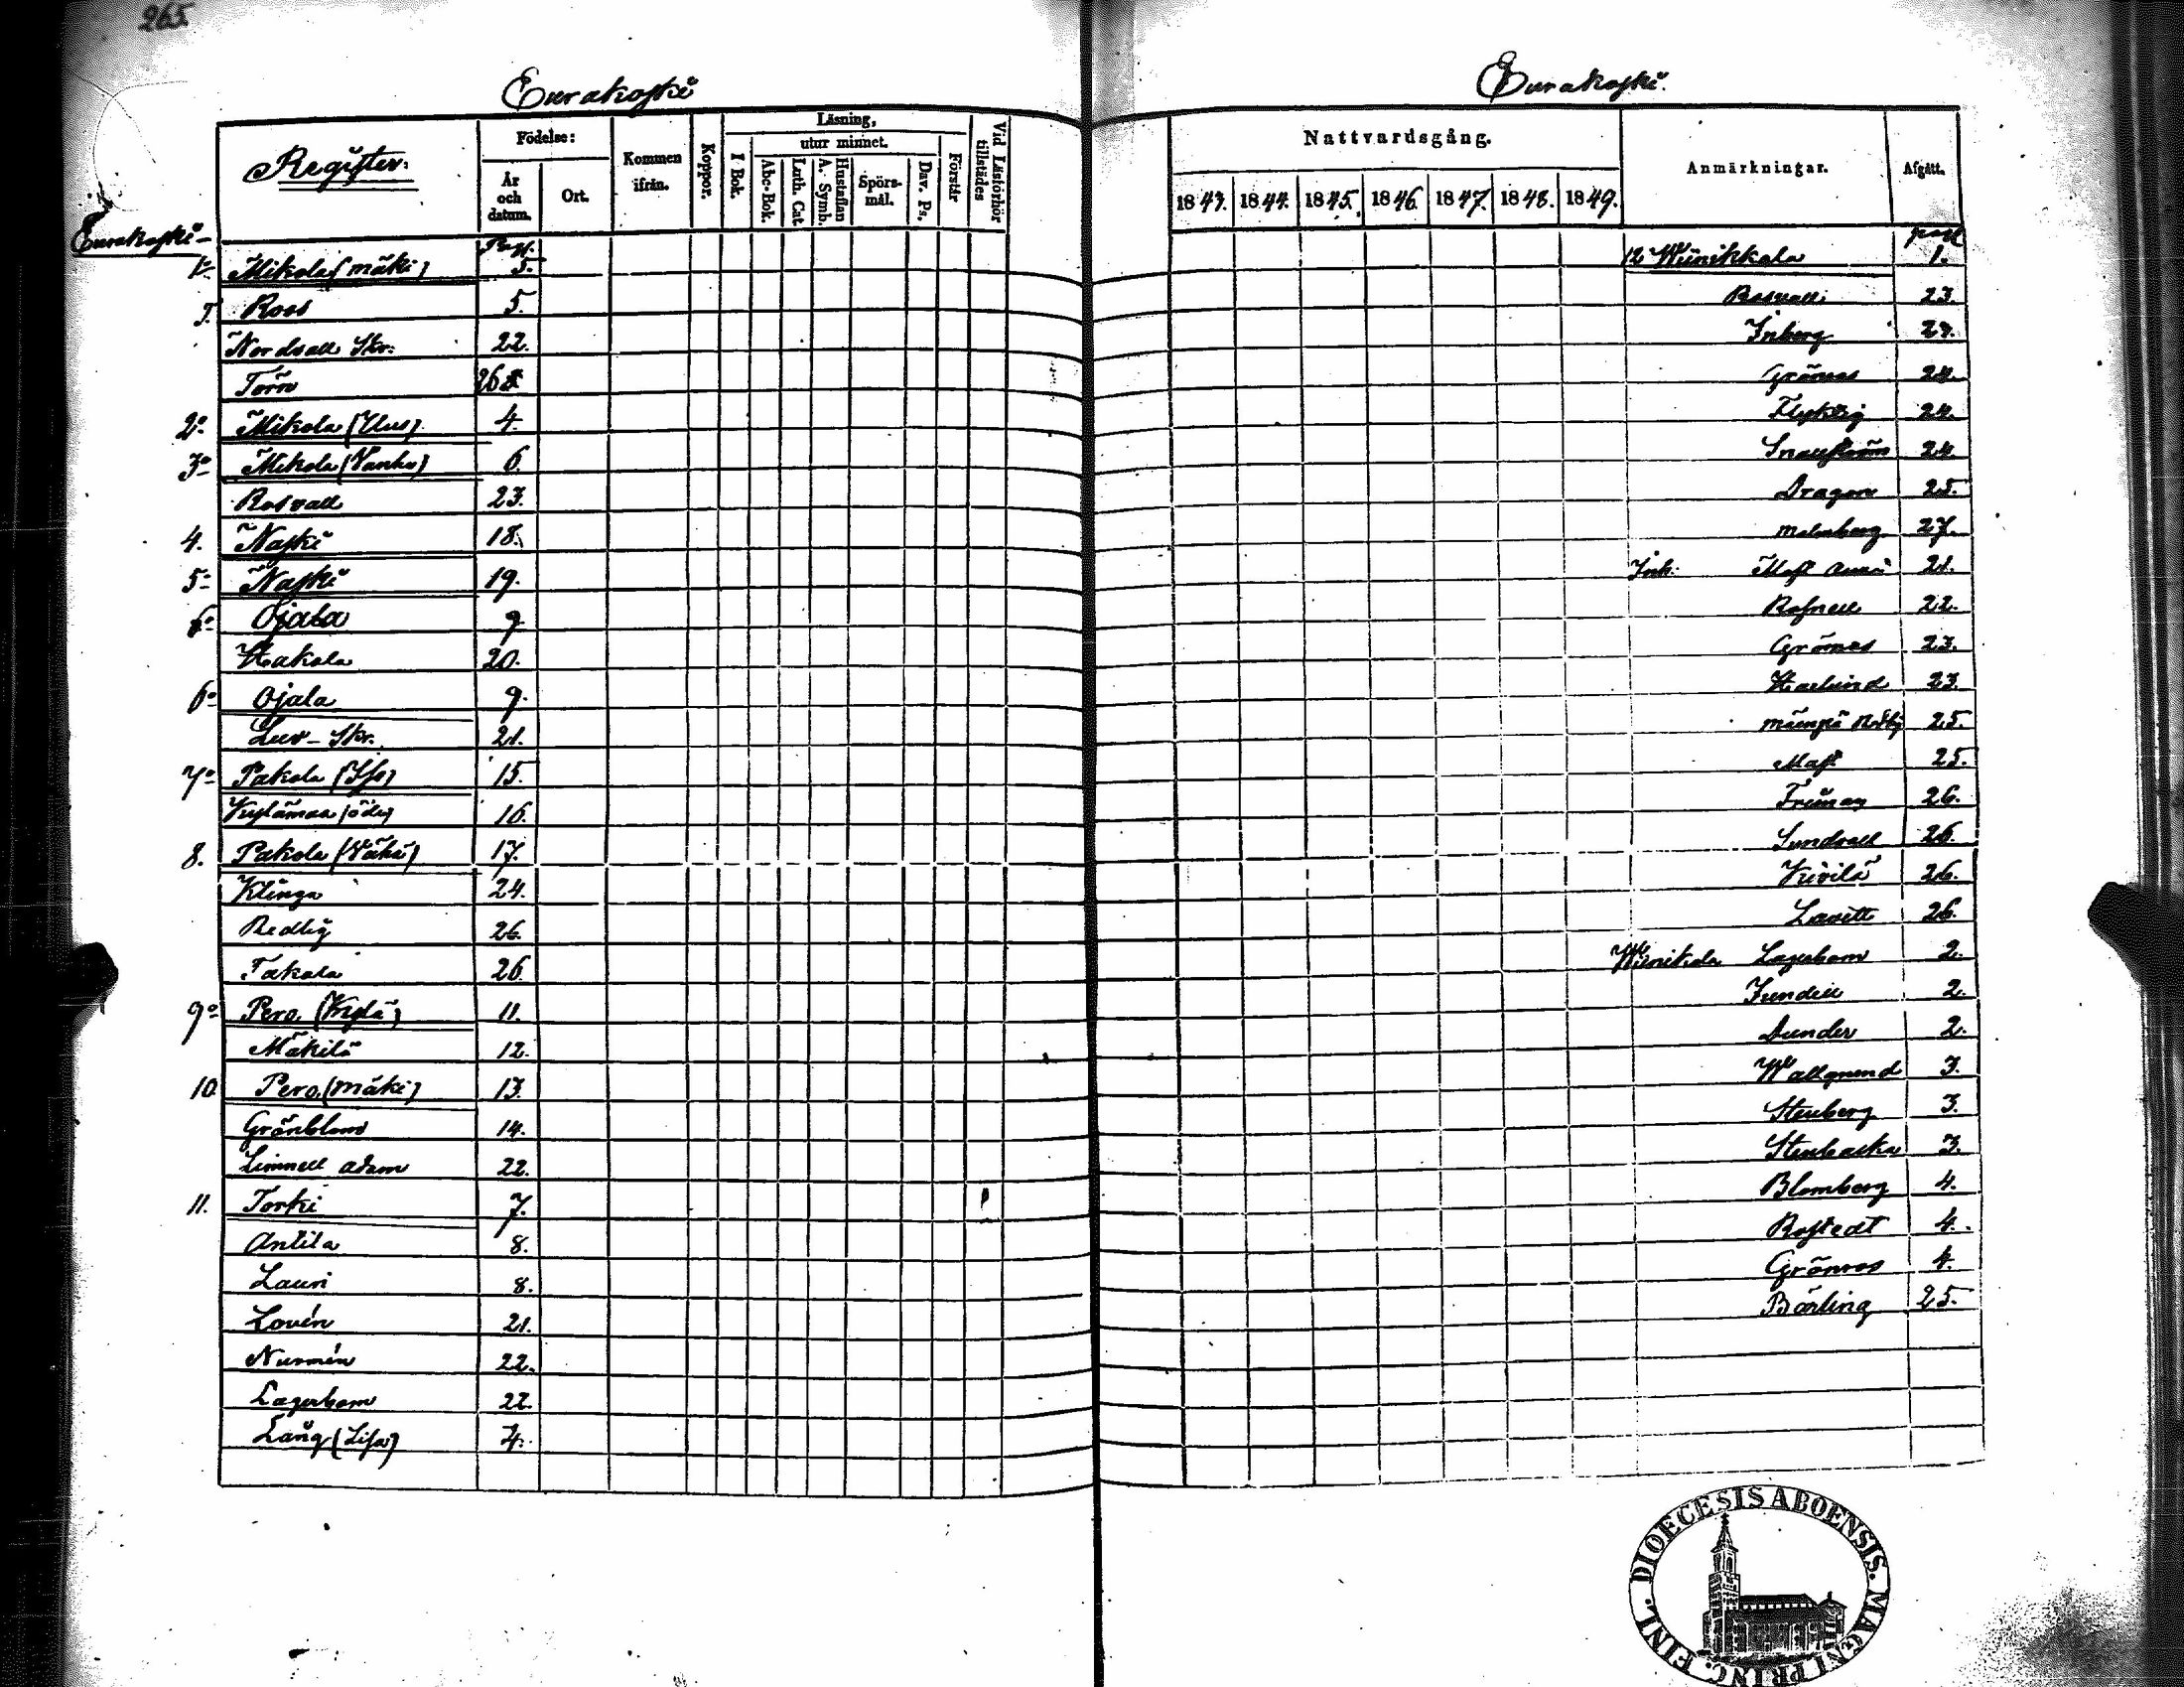 265
Eurakoski
Register:
Födelse:
År och datum.
Ort.
Kommen ifrån.
Koppor.
Läsning,
utur minnet.
I Bok.
Abc-Bok.
Luth. Cat
Hustaflan A. Symb.
Spörsmål.
Dav. Ps.
Förstår
Vid Läsförhör tillstädes
Eurakoski-
Pag.
1. Mikola (mäki) 5.
Roos 5.
Nordvall Skr. 22.
Törn
2. Mikola (Uus) 4
3. Mikola (Vanha) 6.
Rosvall 23.
4. Naski 18.
5. Naski 19.
Ojala 9
Hakola 20.
6. Ojala 9.
Luv-Skr. 21.
7. Pakola (Iso) 15.
Kylämaa (öde) 16.
8. Pakola (Vähä) 17.
Klinga 24.
Redlig 26.
Takala 26.
9. Pero (Kylä) 11.
Mäkilä 12.
10. Pero (mäki) 13.
Grönblom 14.
Limnell Adam 22.
11. Torki 7.
Antila 8.
Lauri 8.
Lovén 21.
Nurmén 22.
Lagerbom 22.
Lång (Lisa) 7.
Eurakoski.
Nattvardsgång.
Anmärkningar.
Afgått.
1843. 1844. 1845. 1846. 1847. 1848. 1849.
12 Wiinikkala 1.
Rosvall 23.
Inberg 23.
Grönros 24.
Flyktig 24.
Snällström 24
Dragon 25.
Malmberg 27.
Inh: 21.
Rosnell 22.
Grönros 23.
Haelund 23.
25.
Mast 25.
Friman 26.
Sundvall 26.
Kivilä 26.
Lavitt 26.
Wiinikala Lagerbom 2.
Fundell 2.
Dunder 2.
Wallgrund 3.
Stenberg 3.
Stenbacka 3.
Blomberg 4.
Rostedt 4.
Grönroos 4.
Bärling 25.
DIOECESIS ABOENSIS. MAGNI PRINC. FINL.